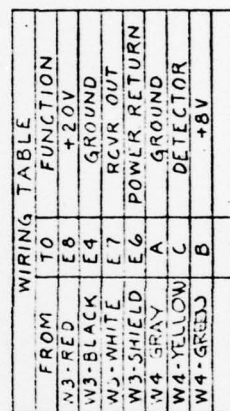 WIRING TABLE
FROM TO FUNCTION
W3-RED E8 +20V
W3-BLACK E4 GROUND
W3-WHITE E7 RCVR OUT
W3-SHIELD E6 POWER RETURN
W4 GRAY A GROUND
W4-YELLOW C DETECTOR
W4-GREEN B +8V